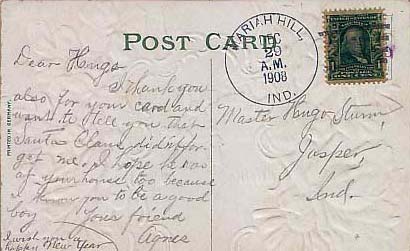 POST CARD
MARIAH HILL,
DEC
29
A.M.
1908
IND.
PRINTED IN GERMANY
Dear Hugo
I thank you
also for your card and
want to tell you that
Santa Claus didn't for
get me, I hope he was
at your house too because
I know you to be a good
boy Your friend
Agnes
I wish you a
happy New Year
Master Hugo Sturm,
Jasper,
Ind.